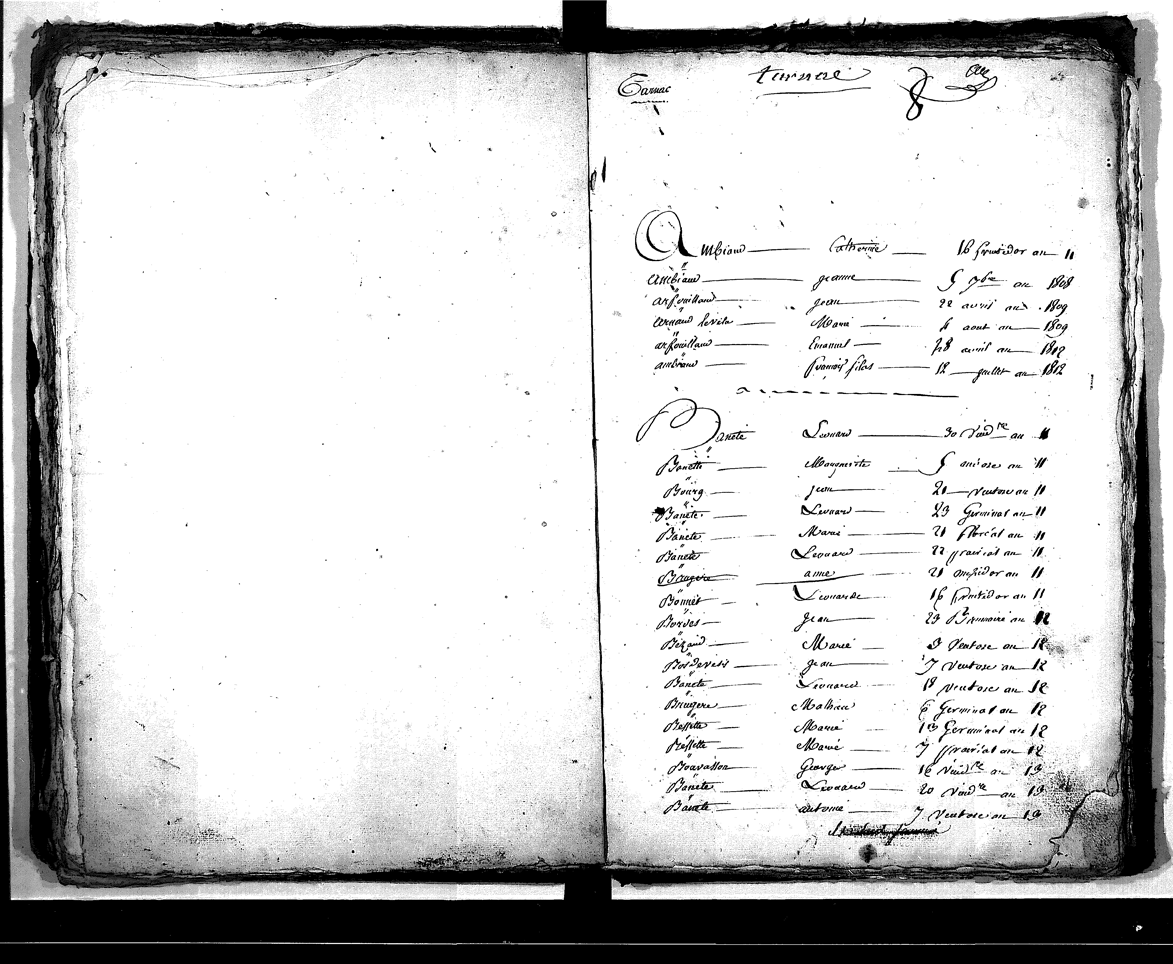 Tarnac
tarnac
Ambiaud Catherine 16 fructidor an 11
Ambiaud jeanne 5 7bre an 1808
arfouillaud jean 22 avril an 1809
arnaud Marie 4 aout an 1809
arfouillaud Emanuel 28 avril an 1812
ambiaud françois silas 12 juillet an 1812
Banete Leonard 30 Vend.re an 11
Banette Marguerite 5 nivose an 11
Bourg jean 21 Ventose an 11
Banete Leonard 23 Germinal an 11
Banete Marie 21 floréal an 11
Banete Leonard 22 prairial an 11
Brugere anne 21 messidor an 11
Bonnet Leonarde 16 fructidor an 11
Bordes jean 23 Brumaire an 12
Bezaud Marie 3 Ventose an 12
Bosdeveix jean 7 Ventose an 12
Banete Leonard 18 ventose an 12
Brugere Mathieu 6 Germinal an 12
Bessette Marie 13 Germinal an 12
Bessette Marie 7 prairial an 12
Bouvasson George 16 Vend.re an 13
Banete Leonard 20 Vend.re an 13
Banete antoine 7 Ventose an 13